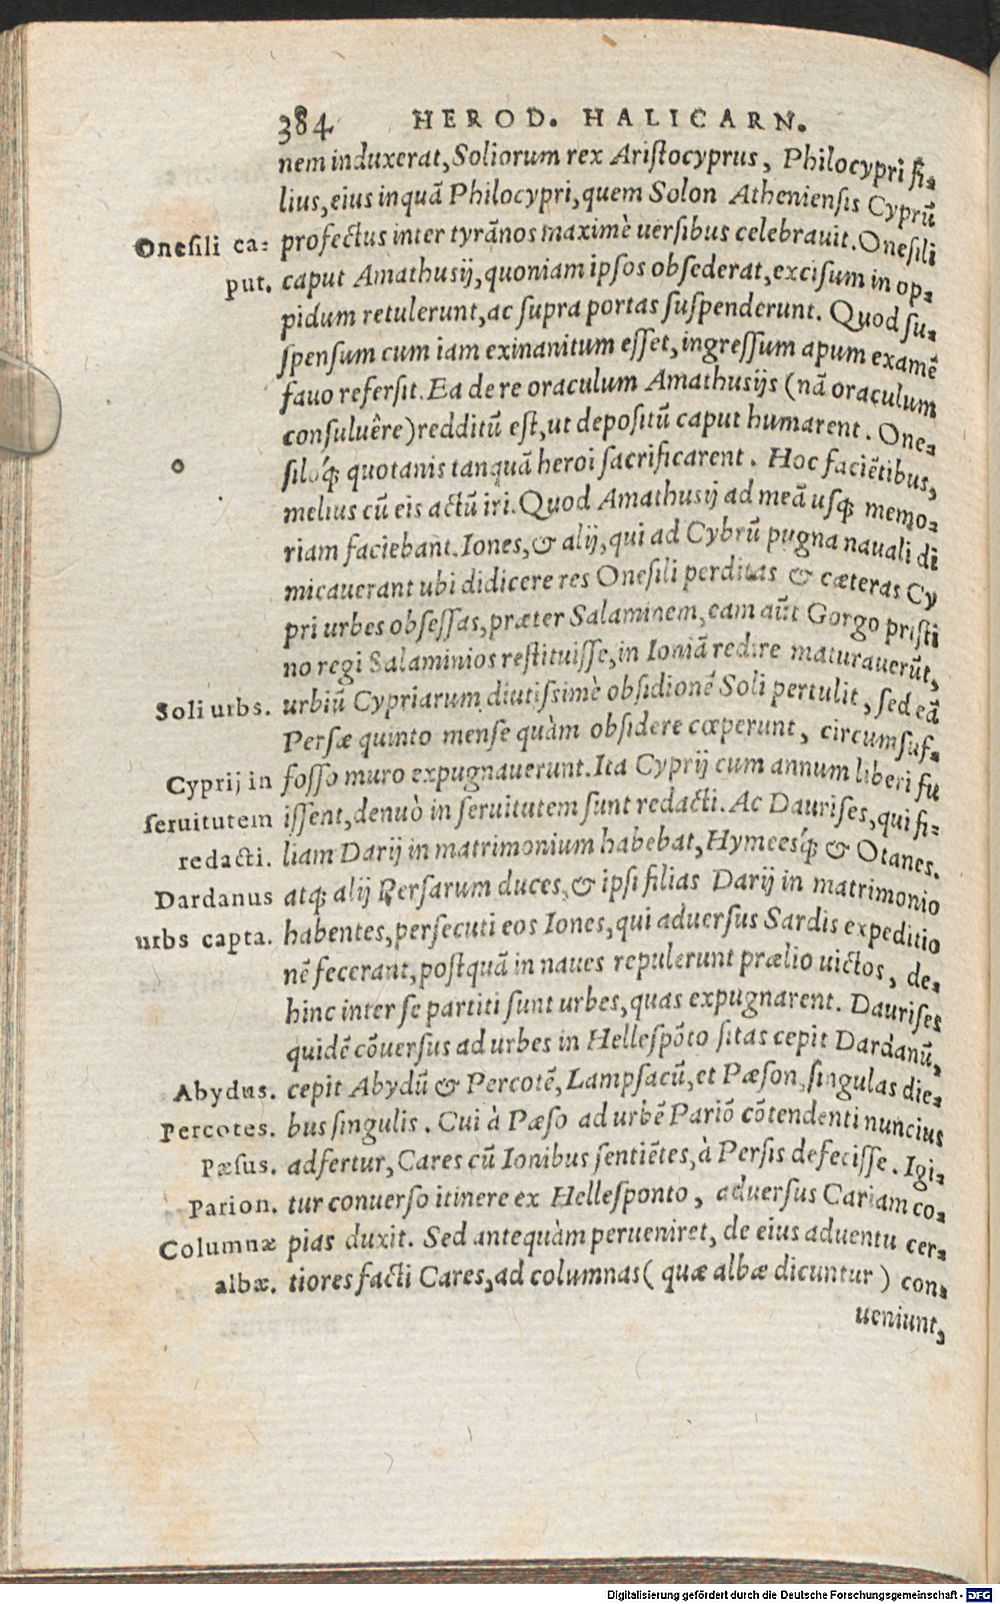 384 HEROD. HALICARN.
nem induxerat, Soliorum rex Aristocyprus, Philocypri fi-
lius, eius inquā Philocypri, quem Solon Atheniensis Cyprū
Onesili ca-
profectus inter tyrānos maximè uersibus celebrauit. Onesili
put.
caput Amathusij, quoniam ipsos obsederat, excisum in op-
pidum retulerunt, ac supra portas suspenderunt. Quod su-
spensum cum iam exinanitum esset, ingressum apum examē
fauo refersit. Ea de re oraculum Amathusijs (nā oraculum
consuluêre) redditū est, ut depositū caput humarent. One-
siloq́ꝫ quotanis tanquā heroi sacrificarent. Hoc faciētibus,
melius cū eis actū iri. Quod Amathusij ad meā usqꝫ memo-
riam faciebant. Iones, & alij, qui ad Cybrū pugna nauali di
micauerant ubi didicere res Onesili perditas & cæteras Cy
pri urbes obsessas, præter Salaminem, eam aūt Gorgo pristi
no regi Salaminios restituisse, in Ioniā redire maturauerūt,
Soli urbs.
urbiū Cypriarum diutissimè obsidionē Soli pertulit, sed eā
Persæ quinto mense quàm obsidere cœperunt, circumsuf-
Cyprij in
fosso muro expugnauerunt. Ita Cyprij cum annum liberi fu
seruitutem
issent, denuò in seruitutem sunt redacti. Ac Daurises, qui fi-
redacti.
liam Darij in matrimonium habebat, Hymeesq́ꝫ & Otanes.
Dardanus
atqꝫ alij Persarum duces, & ipsi filias Darij in matrimonio
urbs capta.
habentes, persecuti eos Iones, qui aduersus Sardis expeditio
nē fecerant, postquā in naues repulerunt prælio uictos, de-
hinc inter se partiti sunt urbes, quas expugnarent. Daurises
quidē cōuersus ad urbes in Hellespōto sitas cepit Dardanū,
Abydus.
cepit Abydū & Percotē, Lampsacū, et Pæson, singulas die-
Percotes.
bus singulis. Cui à Pæso ad urbē Pariō cōtendenti nuncius
Pæsus.
adfertur, Cares cū Ionibus sentiētes, à Persis defecisse. Igi-
Parion.
tur conuerso itinere ex Hellesponto, aduersus Cariam co-
Columnæ
pias duxit. Sed antequàm perueniret, de eius aduentu cer-
albæ.
tiores facti Cares, ad columnas (quæ albæ dicuntur) con-
ueniunt,
Digitalisierung gefördert durch die Deutsche Forschungsgemeinschaft - DFG